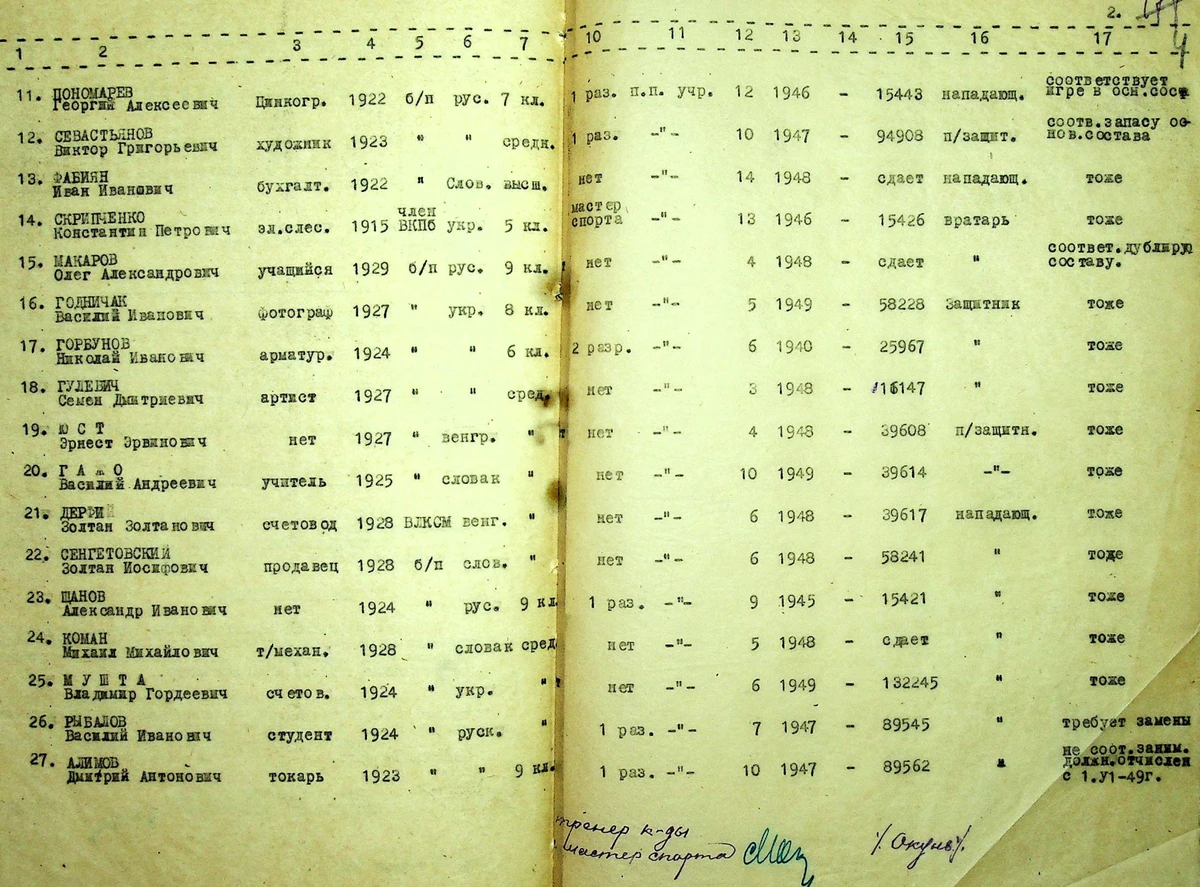 2.
4
1 2 3 4 5 6 7 10 11 12 13 14 15 16 17
соответствует
11. ПОНОМАРЕВ игре в осн.сост.
Георгий Алексеевич Цинкогр. 1922 б/п рус. 7 кл. 1 раз. п.п. учр. 12 1946 - 15443 нападающ.
соотв.запасу ос-
12. СЕВАСТЬЯНОВ 1 раз. -"- 10 1947 - 94908 п/защит. нов.состава
Виктор Григорьевич художник 1923 " " средн.
13. ФАБИЯН нет -"- 14 1948 - сдает нападающ. тоже
Иван Иванович бухгалт. 1922 " Слов. высш.
14. СКРИПЧЕНКО член мастер
Константин Петрович эл.слес. 1915 ВКПб укр. 5 кл. спорта -"- 13 1946 - 15426 вратарь тоже
соответ.дублирую
15. МАКАРОВ нет -"- 4 1948 - сдает " составу.
Олег Александрович учащийся 1929 б/п рус. 9 кл.
16. ГОДНИЧАК нет -"- 5 1949 - 58228 Защитник тоже
Василий Иванович фотограф 1927 " укр. 8 кл.
17. ГОРБУНОВ 2 разр. -"- 6 1940 - 25967 " тоже
Николай Иванович арматур. 1924 " " 6 кл.
18. ГУЛЕВИЧ нет -"- 3 1948 - 116147 " тоже
Семен Дмитриевич артист 1927 " " сред.
19. Ю С Т нет -"- 4 1948 - 39608 п/защитн. тоже
Эрнест Эрвинович нет 1927 " венгр. "
20. Г А Ж О нет -"- 10 1949 - 39614 -"- тоже
Василий Андреевич учитель 1925 " словак "
21. ДЕРФИЙ нет -"- 6 1948 - 39617 нападающ. тоже
Золтан Золтанович счетовод 1928 ВЛКСМ венг. "
22. СЕНГЕТОВСКИЙ нет -"- 6 1948 - 58241 " тоже
Золтан Иосифович продавец 1928 б/п слов. "
23. ЩАНОВ 1 раз. -"- 9 1945 - 15421 " тоже
Александр Иванович нет 1924 " рус. 9 кл
24. КОМАН нет -"- 5 1948 - сдает " тоже
Михаил Михайлович т/механ. 1928 " словак сред
25. М У Ш Т А нет -"- 6 1949 - 132245 " тоже
Владимир Гордеевич счетов. 1924 " укр. "
26. РЫБАЛОВ 1 раз. -"- 7 1947 - 89545 " требует замены
Василий Иванович студент 1924 " руск. "
не соот.заним.
27. АЛИМОВ 1 раз. -"- 10 1947 - 89562 " должн.отчислен
Дмитрий Антонович токарь 1923 " " 9 кл. с 1.У1-49г.
тренер к-ды
мастер спорта /Окунь/.